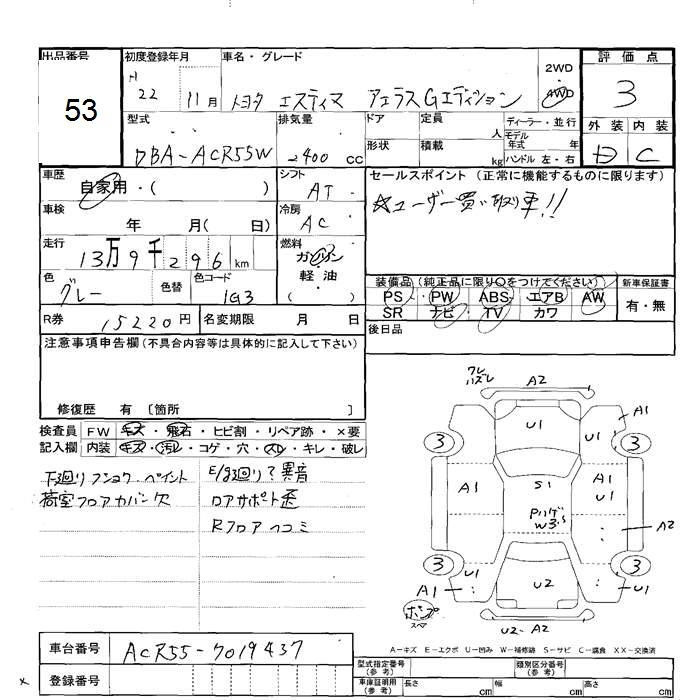 出品番号
53
初度登録年月
H
22 11月
車名・グレード
トヨタ エスティマ アエラスGエディション
2WD
4WD
評価点
3
外装 内装
D C
型式
DBA-ACR55W
排気量
2400 cc
ドア
定員
人
ディーラー・並行
モデル
年式 年
形状
積載
kg
ハンドル 左・右
車歴
自家用・( )
シフト
AT
セールスポイント (正常に機能するものに限ります)
☆ユーザー買い取り車!!
車検
年 月( 日)
冷房
AC
走行
13万9千296km
燃料
ガソリン
軽油
( )
色
グレー
色替
色コード
1G3
装備品(純正品に限り○をつけてください)
新車保証書
PS・PW ABS エアB AW
有・無
SR ナビ TV カワ
R券 15220円
名変期限 月 日
後日品
注意事項申告欄(不具合内容等は具体的に記入して下さい)
修復歴 有〔箇所 〕
検査員
記入欄
FW キズ・飛石・ヒビ割・リペア跡・×要
内装 キズ・汚レ・コゲ・穴・スレ・キレ・破レ
下廻り フンヨク、ペイント
荷室フロアカバン欠
E/g廻り?異音
ロアサポート歪
Rフロアヘコミ
ワレ
ハズレ
A2
U1
A1
3
3
A1
S1
A1
U1
Pハゲ
W3
A2
3
3
U1
A1
U2
U1
ポンプ
スペア
U2-A2
A-キズ E-エクボ U-凹み W-補修跡 S-サビ C-腐食 XX-交換済
車台番号
ACR55-7019437
登録番号
型式指定番号
(参考)
類別区分番号
(参考)
車庫証明用
(参考)
長さ cm
幅 cm
高さ cm
×